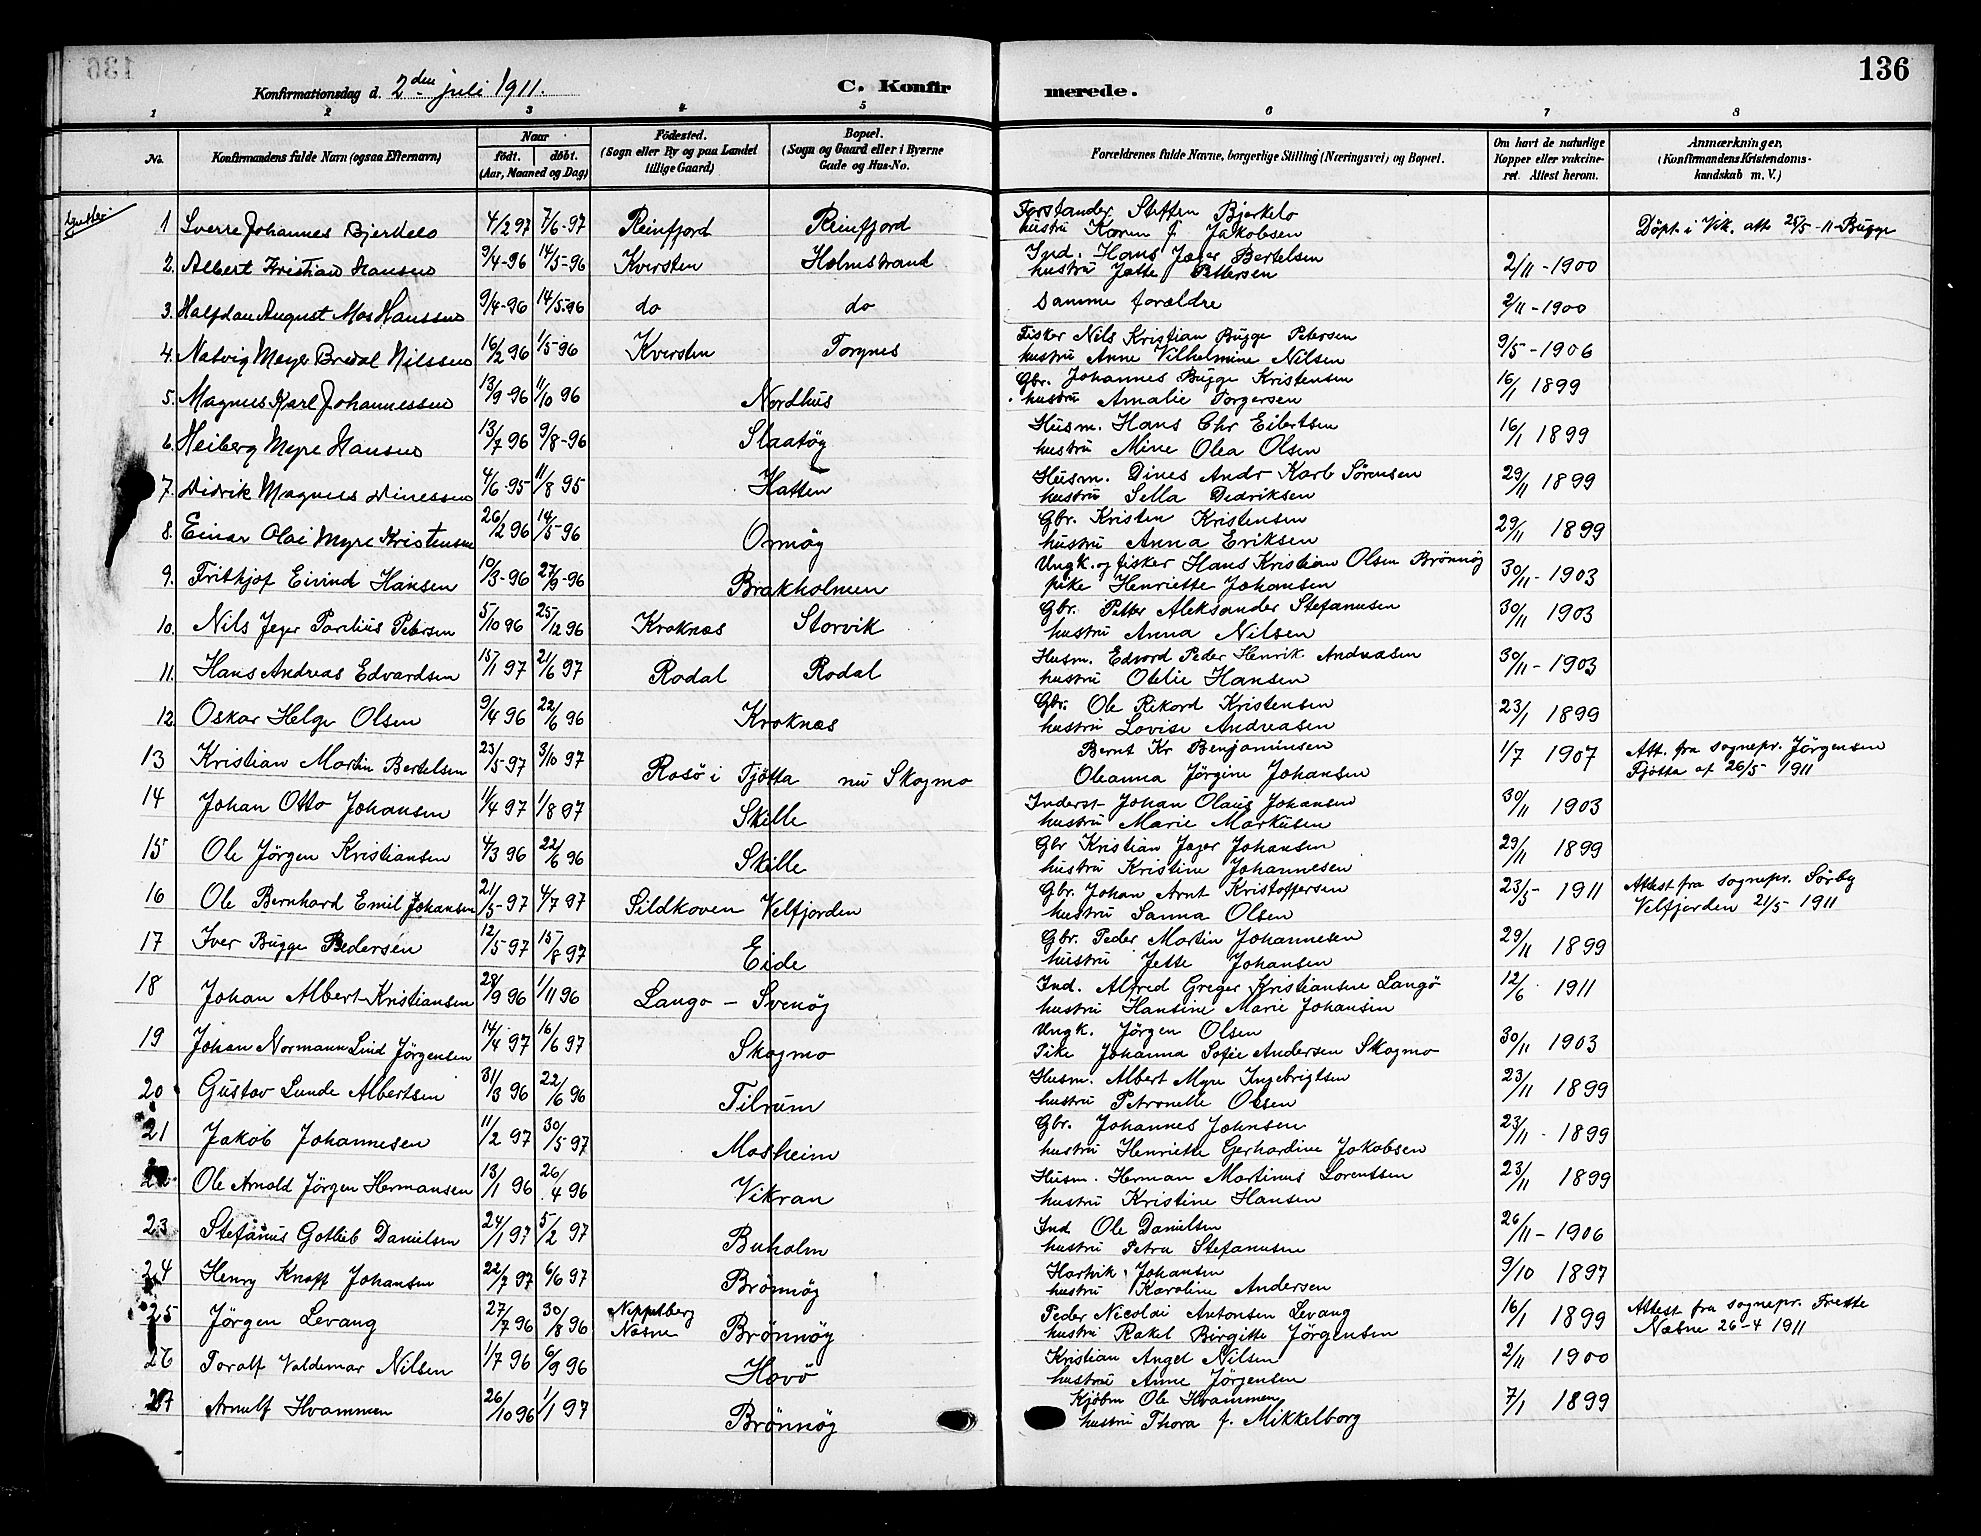 136
Konfirmationsdag d. 2den juli 1911.
C. Konfirmerede.
136
1 2 3 4 5 6 7 8
No.
Konfirmandens fulde Navn (ogsaa Efternavn)
Naar
født. døbt.
(Aar, Maaned og Dag)
Fødested.
(Sogn eller By og paa Landet
tillige Gaard)
Bopæl.
(Sogn og Gaard eller i Byerne
Gade og Hus-No.
Forældrenes fulde Navne, borgerlige Stilling (Næringsvei) og Bopæl.
Om havt de naturlige
Kopper eller vakcine-
ret. Attest herom.
Anmærkninger,
(Konfirmandens Kristendoms-
kundskab m. V.)
1 Sverre Johannes Bjerkelo 4/2 97 7/6-97 Reinfjord Reinfjord Forstander Steffen Bjerkelo Döpt i Vik. att. 25/5-11 Bugge
hustru Karen f. Jakobsen
2. Albert Kristian Hansen 9/4-96 14/5-96 Kversten Holmstrand Ind. Hans Jæger Bertelsen 2/11-1900
hustru Jette Pettersen
3. Halfdan August Mos Hanssen 9/4-96 14/5-96 do do Samme forældre 2/11-1900
4. Natvig Meyer Bredal Nilssen 16/2 96 1/5-96 Kversten Torgnes Fisker Nils Kristian Bugge Petersen 9/5-1906
hustru Anne Vilhelmine Nilsen
5. Magnus Karl Johannessen 13/9-96 11/10 96 Nordhus Gbr. Johannes Bugge Kristensen 16/1 1899
hustru Amalie Torgersen
6. Heiberg Myre Hansen 13/7 96 9/8-96 Slaatöy Husm. Hans Chr Eilertsen 16/1 1899
hustru Mine Olea Olsen
7. Didrik Magnus Dinessen 4/6-95 11/8 95 Hatten Husm. Dines Andr Karb Sörensen 29/11 1899
hustru Sella Dedriksen
8. Einar Olai Myre Kristensen 26/2 96 14/5-96 Ormöy Gbr. Kristen Kristensen 29/11 1899
hustru Anna Eriksen
9. Frithjof Eivind Hansen 10/3-96 27/9-96 Brakholmen Ungk. og fisker Hans Kristian Olsen Brönnöy 30/11-1903
pike Henriette Johansen
10. Nils Jeger Parelius Petersen 5/10 96 25/12 96 Kroknes Storvik Gbr. Petter Aleksander Stefanusen 30/11 1903
hustru Anna Nilsen
11. Hans Andreas Edvardsen 15/1 97 21/6 97 Rodal Rodal Husm. Edvard Peder Henrik Andreasen 30/11-1903
hustru Otelie Hansen
12 Oskar Helge Olsen 9/4 96 22/6 96 Kroknes Gbr. Ole Rikard Kristensen 23/1 1899
hustru Lovise Andreasen
13 Kristian Martin Bertelsen 23/5-97 3/10 97 Rosö i Tjötta nu Skogmo Bernt Kr Benjaminsen 1/7 1907 Att. fra sognepr. Jörgensen
Oleanna Jörgine Johansen Tjötta af 26/5 1911
14 Johan Otto Johansen 1/4 97 1/8 97 Skille Inderst Johan Olaus Johansen 30/11 1903
hustru Marie Markusen
15 Ole Jörgen Kristiansen 4/3 96 22/6 96 Skille Gbr Kristian Jæger Johansen 29/11 1899
hustru Kristine Johannesen
16 Ole Bernhard Emil Johansen 21/5-97 4/7 97 Sildkoven Velfjorden Gbr. Johan Arnt Kristoffersen 23/5- 1911 Attest fra sognepr. Sörby
hustru Sanna Olsen Velfjorden 21/5 1911
17 Iver Bugge Pedersen 12/5 97 15/8 97 Eide Gbr. Peder Martin Johannesen 29/11 1899
hustru Jette Johansen
18 Johan Albert Kristiansen 28/9 96 1/11 96 Lango - Svenöy Ind. Alfred Greger Kristiansen Langö 12/6 1911
hustru Hansine Marie Johansen
19 Johan Normann Lind Jörgensen 14/4 97 16/6 97 Skogmo Ungk. Jörgen Olsen 30/11 1903
Pike Johanna Sofie Andersen Skogmo
20 Gustav Lunde Albertsen 31/3 96 22/6 96 Tilrum Husm. Albert Myre Ingebrigtsen 23/11 1899
hustru Petronelle Olsen
21 Jakob Johannesen 11/2 97 30/5 97 Mosheim Gbr. Johannes Johnsen 23/11-1899
hustru Henriette Gerhardine Jakobsen
22 Ole Arnold Jörgen Hermansen 13/1 96 26/4 96 Vikran Husm. Herman Martinus Lorentsen 23/11 1899
hustru Kristine Hansen
23 Stefanus Gotlieb Danielsen 24/1 97 5/2 97 Buholm Ind Ole Danielsen 26/11-1906
hustru Petra Stefanusen
24 Henry Knoff Johansen 22/2 97 6/6 97 Brönnöy Hartvik Johansen 9/10 1897
hustru Karoline Andersen
25 Jörgen Levang 27/7 96 30/8 96 Nepptsberg Nesne Brönnöy Peder Nicolai Antonsen Levang 16/1 1899 Attest fra sognepr. Frette
hustru Rakel Bergitte Jörgensen Næsne 26-4 1911
26 Toralf Valdemar Nilsen 1/7 96 6/9 96 Havö Kristian Angel Nilsen 2/11 1900
hustru Anne Jörgensen
27 Arnulf Hvammen 26/10 96 1/1 97 Brönnöy Kjöbm Ole Hvammen 7/1 1899
hustru Thora f. Mikkelborg